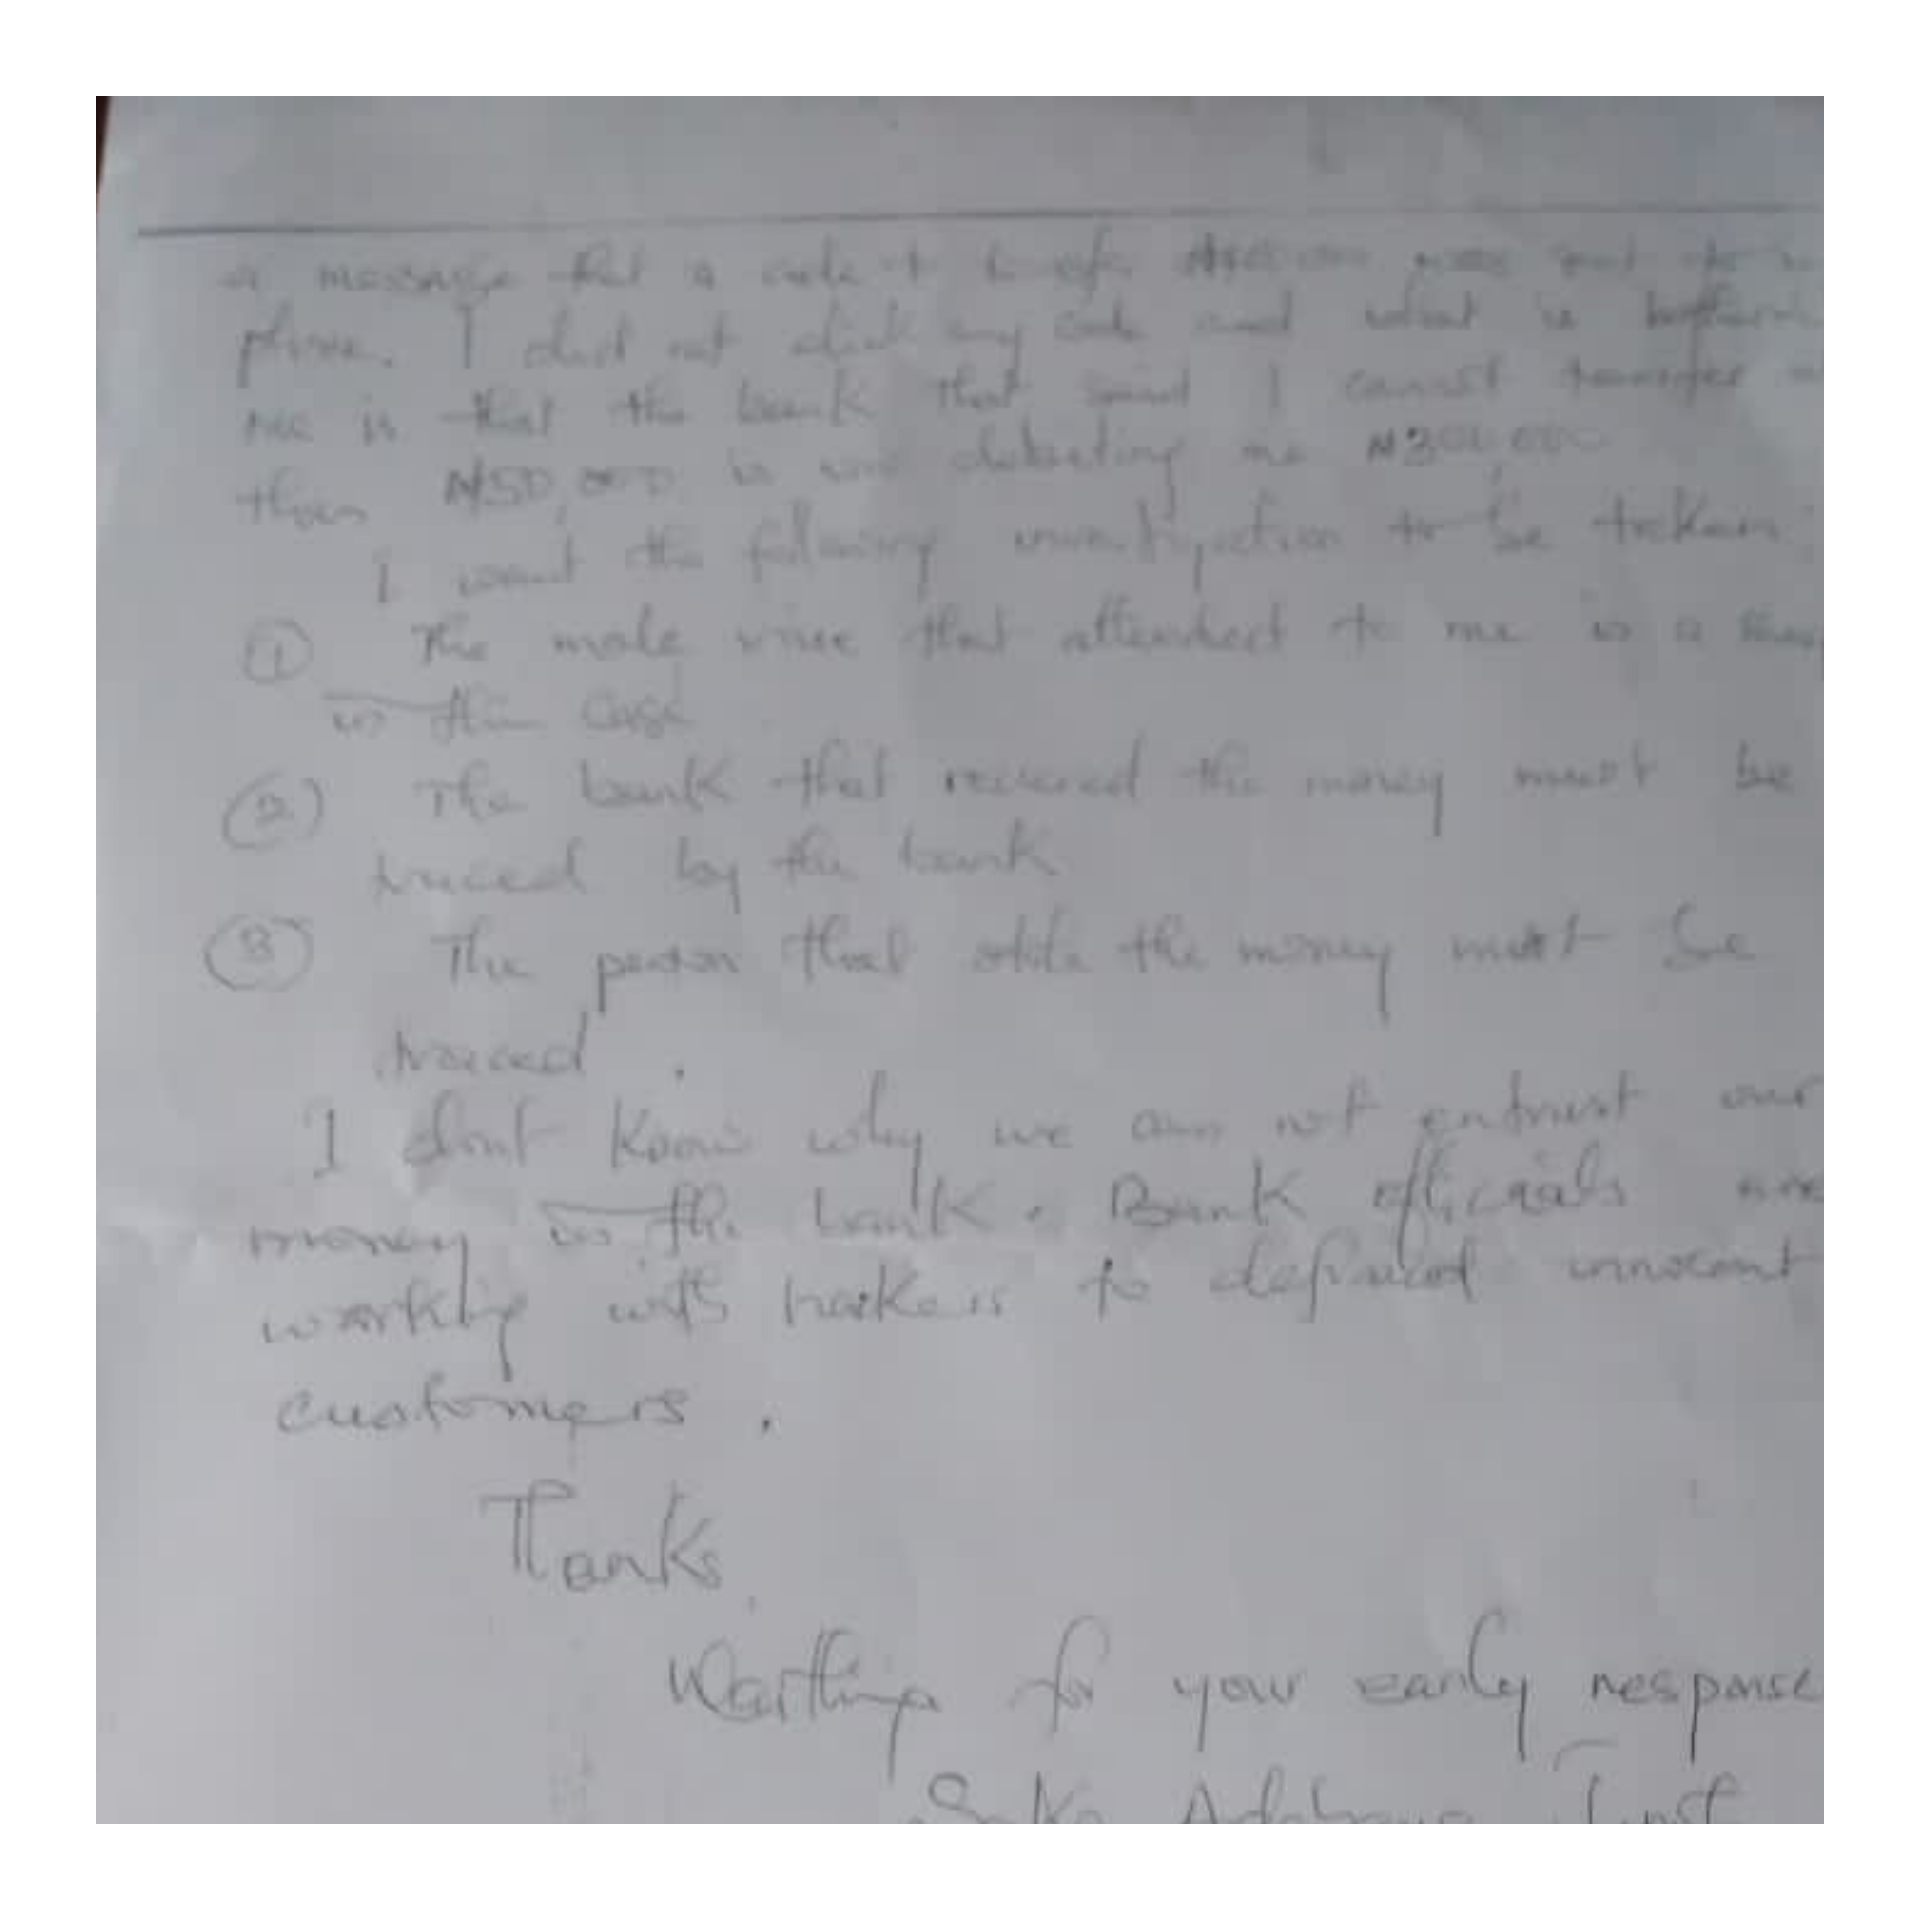 a message that a code to
phone. I did not dial any code and what is
me is that the bank that said I cannot transfer
than ₦50,000 is now debiting me ₦300,000
I want the following investigation to be taken:
① The male voice that attended to me is a
in this case
② The bank that received the money must be
traced by the bank
③ The person that stole the money must be
traced.
I dont know why we can not entrust our
money in the bank. Bank officials are
working with hackers to defraud innocent
customers.
Thanks
Waiting for your early response